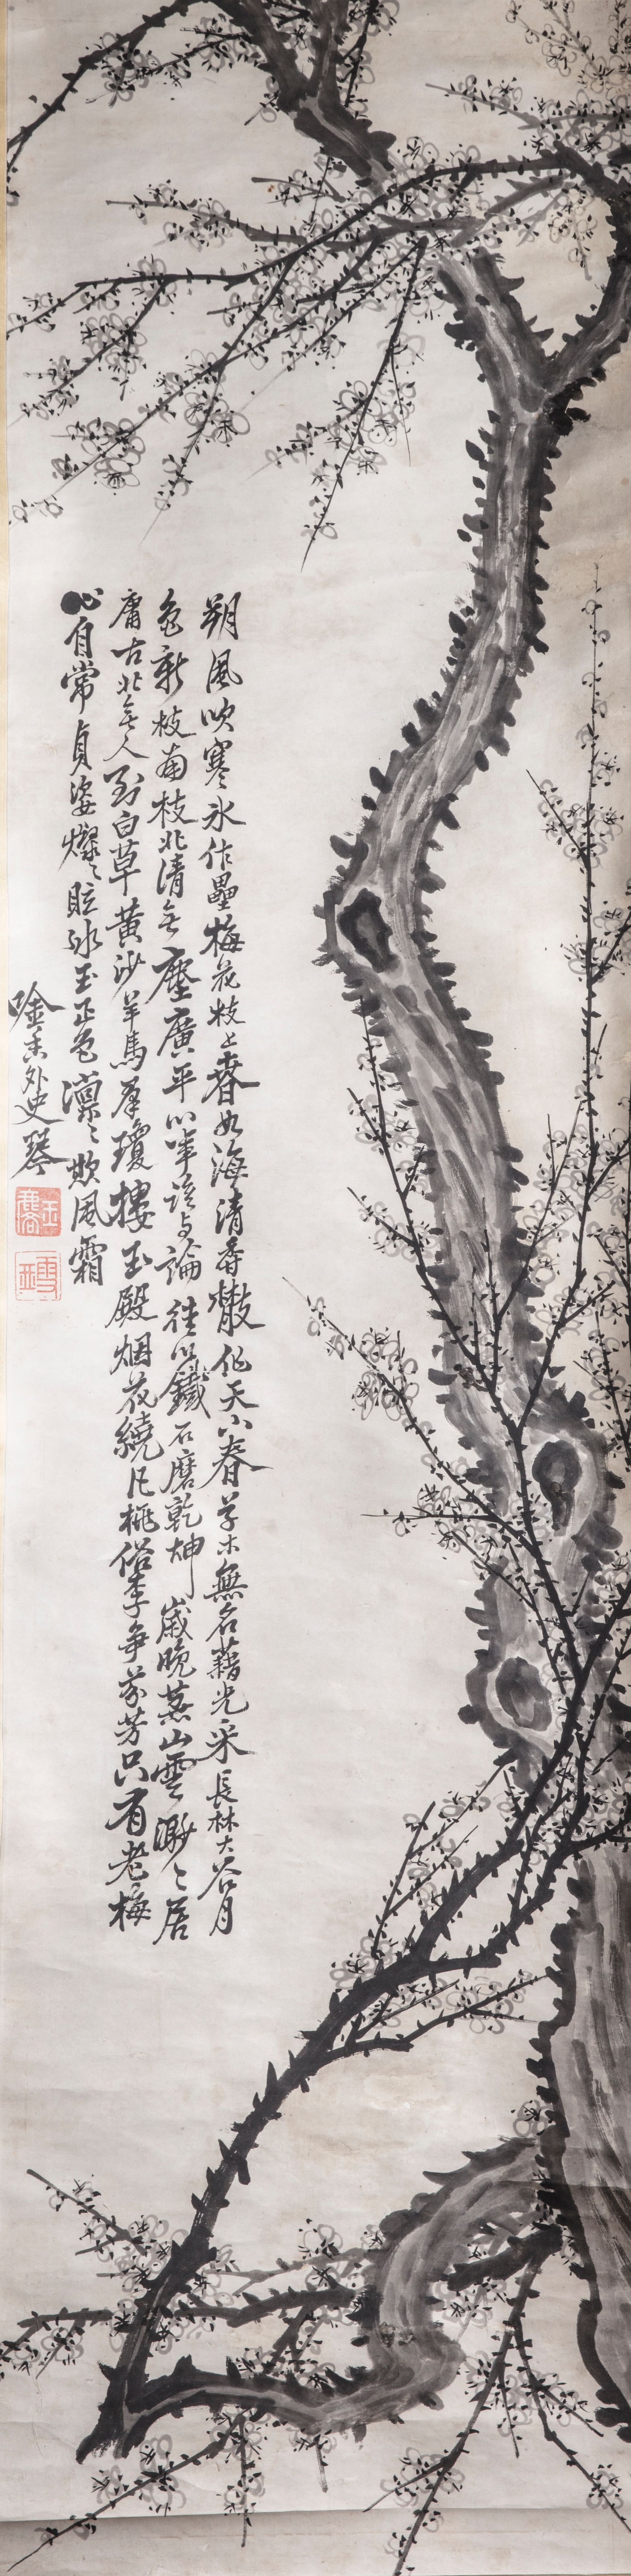 朔風吹寒冰作壘梅花枝上春如海清香散作天下春草木無名藉光采長林大谷月
色新枝南枝北清無塵廣平心事誰與論徒以鐵石磨乾坤歲晚燕山雲渺〻居
庸古北無人到白草黃沙羊馬群瓊樓玉殿烟花繞凡桃俗李爭芬芳只有老梅
心自常貞姿燦〻眩冰玉正色凜〻欺風霜
唫香外史琴